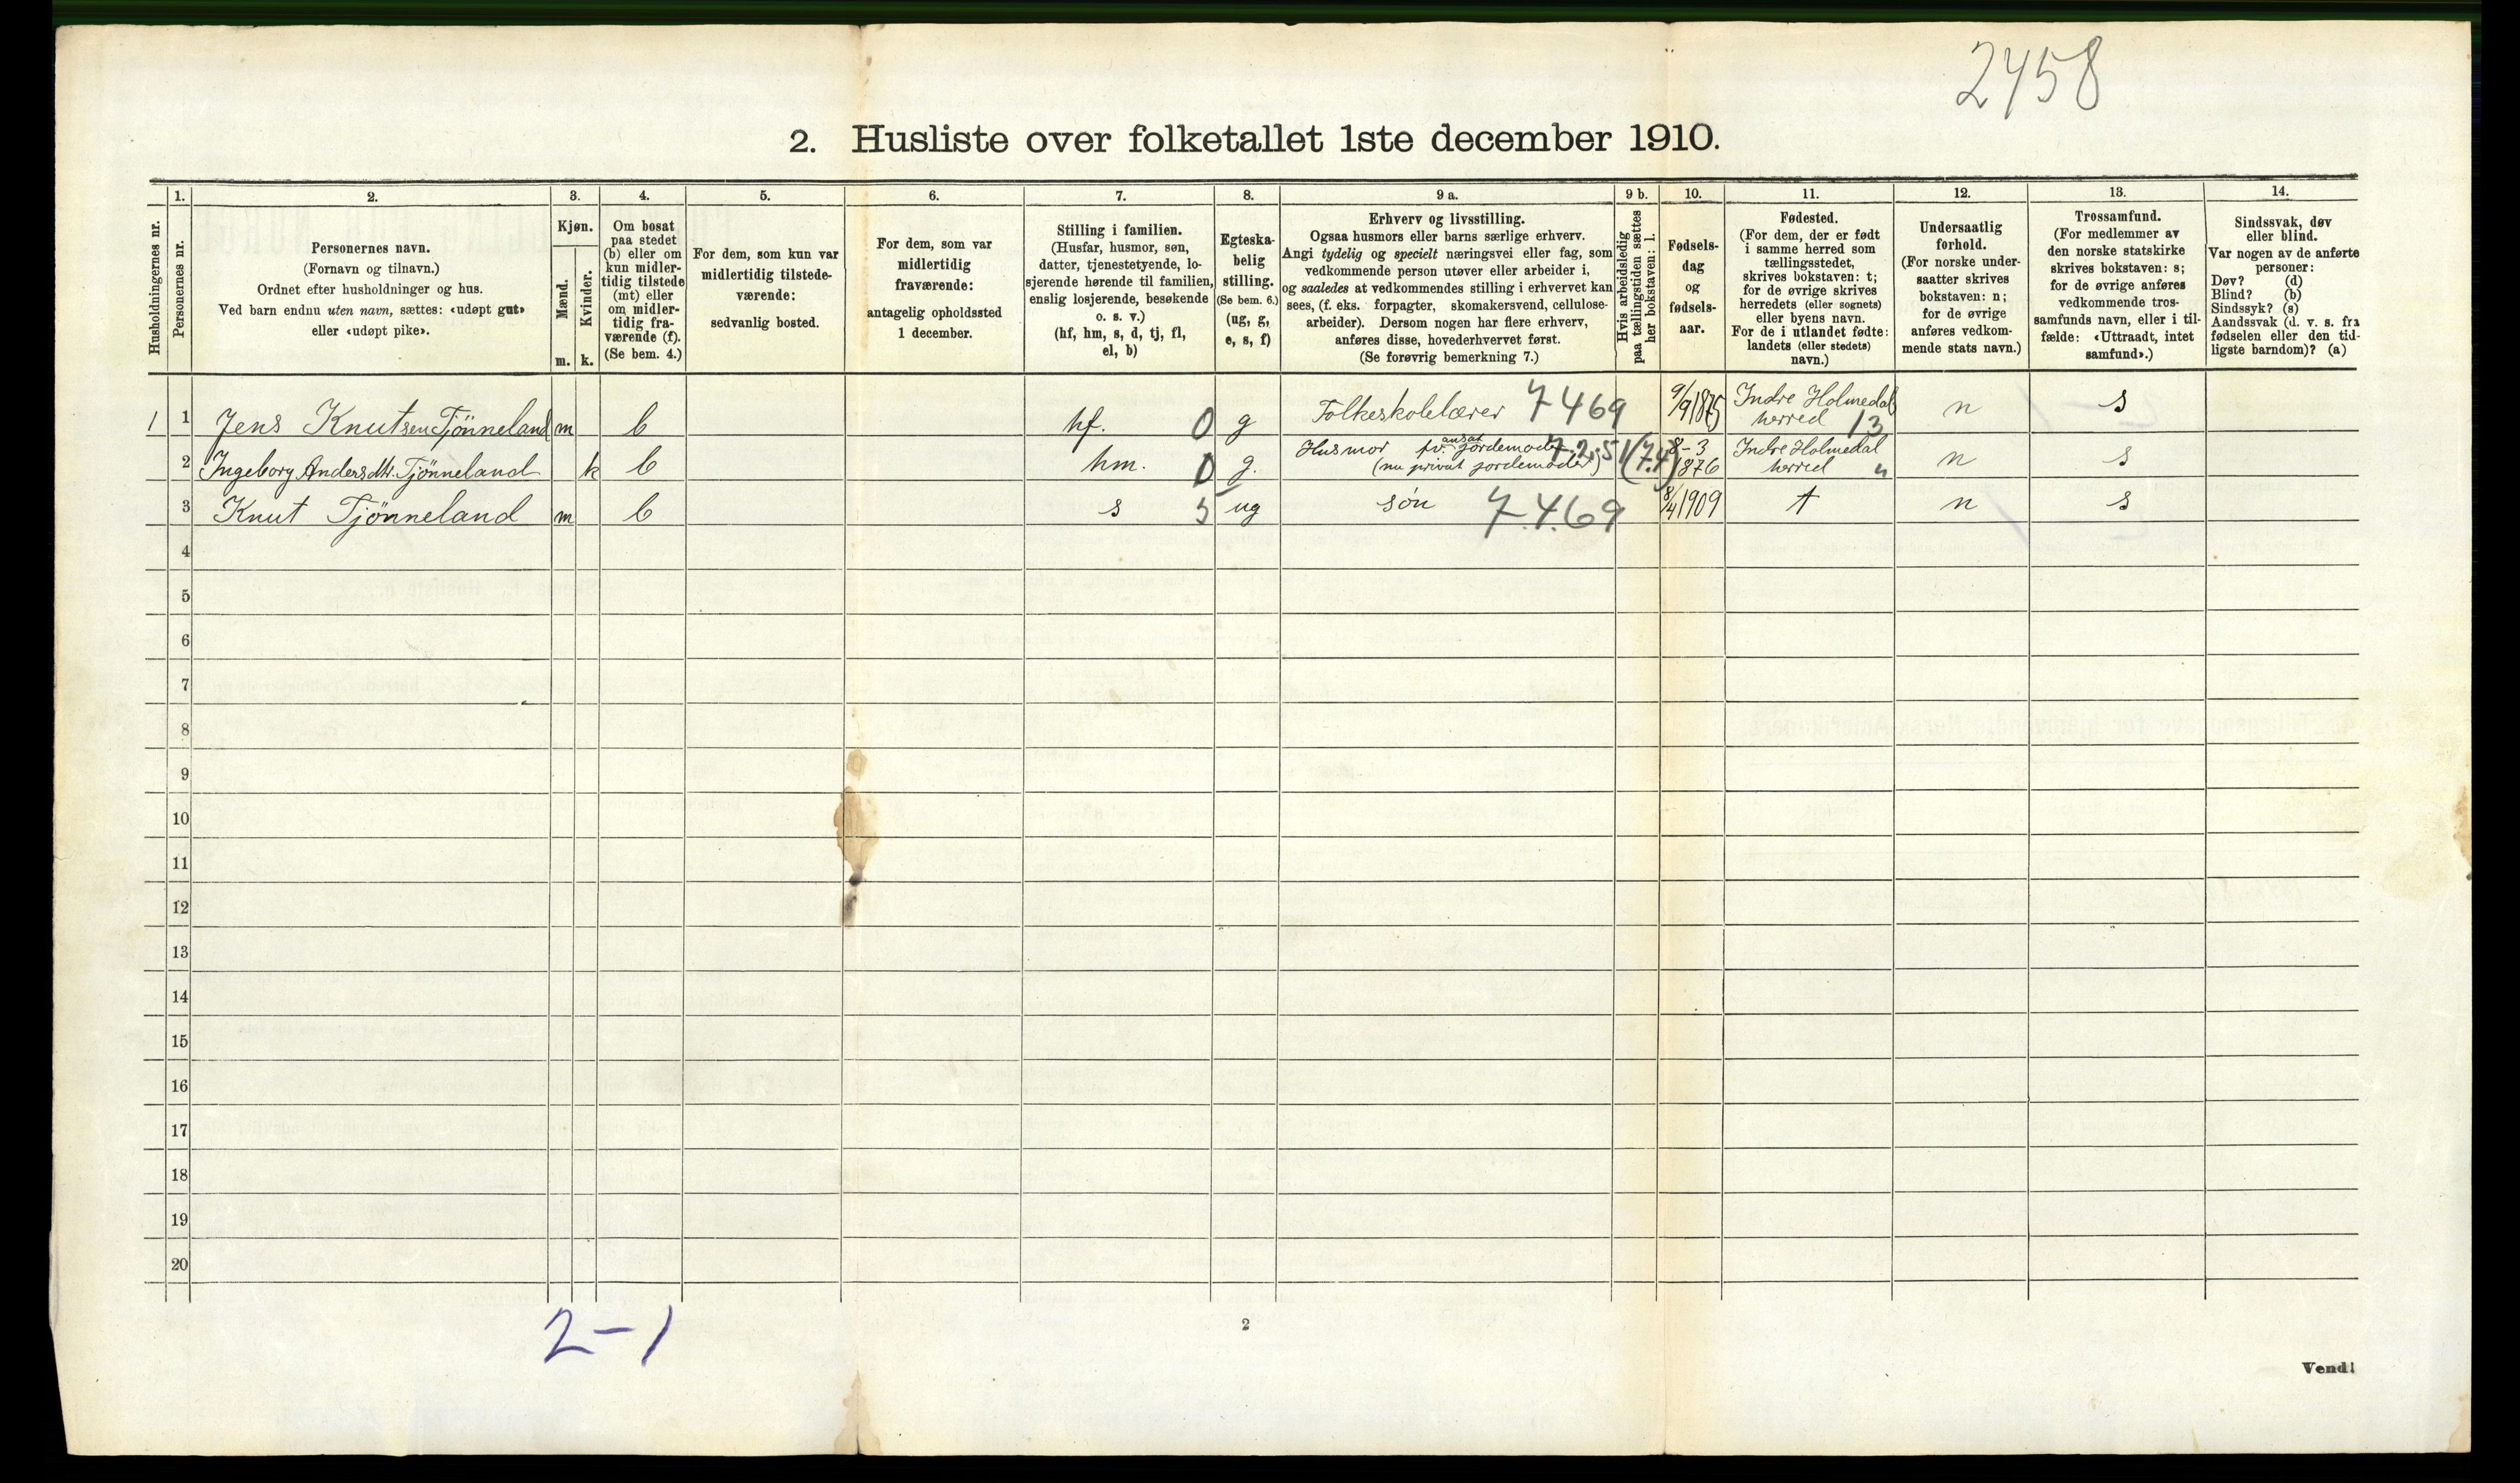 2458
2. Husliste over folketallet 1ste december 1910.
Husholdningernes nr.
1.
Personernes nr.
2.
Personernes navn.
(Fornavn og tilnavn.)
Ordnet efter husholdninger og hus.
Ved barn endnu uten navn, sættes: «udøpt gut»
eller «udøpt pike».
3.
Kjøn.
Mænd.
Kvinder.
m.
k.
4.
Om bosat
paa stedet
(b) eller om
kun midler-
tidig tilstede
(mt) eller
om midler-
tidig fra-
værende (f).
(Se bem. 4.)
5.
For dem, som kun var
midlertidig tilstede-
værende:
sedvanlig bosted.
6.
For dem, som var
midlertidig
fraværende:
antagelig opholdssted
1 december.
7.
Stilling i familien.
(Husfar, husmor, søn,
datter, tjenestetyende, lo-
sjerende hørende til familien,
enslig losjerende, besøkende
o. s. v.)
(hf, hm, s, d, tj, fl,
el, b)
8.
Egteska-
belig
stilling.
(Se bem. 6.)
(ug, g,
e, s, f)
9 a.
Erhverv og livsstilling.
Ogsaa husmors eller barns særlige erhverv.
Angi tydelig og specielt næringsvei eller fag, som
vedkommende person utøver eller arbeider i,
og saaledes at vedkommendes stilling i erhvervet kan
sees, (f. eks. forpagter, skomakersvend, cellulose-
arbeider). Dersom nogen har flere erhverv,
anføres disse, hovederhvervet først.
(Se forøvrig bemerkning 7.)
9 b.
Hvis arbeidsledig
paa tællingstiden sættes
her bokstaven: l.
10.
Fødsels-
dag
og
fødsels-
aar.
11.
Fødested.
(For dem, der er født
i samme herred som
tællingsstedet,
skrives bokstaven: t;
for de øvrige skrives
herredets (eller sognets)
eller byens navn.
For de i utlandet fødte:
landets (eller stedets)
navn.)
12.
Undersaatlig
forhold.
(For norske under-
saatter skrives
bokstaven: n;
for de øvrige
anføres vedkom-
mende stats navn.)
13.
Trossamfund.
(For medlemmer av
den norske statskirke
skrives bokstaven: s;
for de øvrige anføres
vedkommende tros-
samfunds navn, eller i til-
fælde: «Uttraadt, intet
samfund».)
14.
Sindssvak, døv
eller blind.
Var nogen av de anførte
personer:
Døv? (d)
Blind? (b)
Sindssyk? (s)
Aandssvak (d. v. s. fra
fødselen eller den tid-
ligste barndom)? (a)
1 1 Jens Knutsen Tjönneland m b hf. 0 g Folkeskolelærer 7469 9/9 1875 Indre Holmedal herred 13 n s
2 Ingeborg Andersdtr. Tjönneland k b hm. 0 g. Husmor fv. ansat jordemoder (nu privat jordemoder) 7.2.51 (7.4) 8-3 1876 Indre Holmedal herred " n s
3 Knut Tjönneland m b s 5 ug søn 7.4.69 8/4 1909 t n s
4
5
6
7
8
9
10
11
12
13
14
15
16
17
18
19
20
2-1
2
Vend!